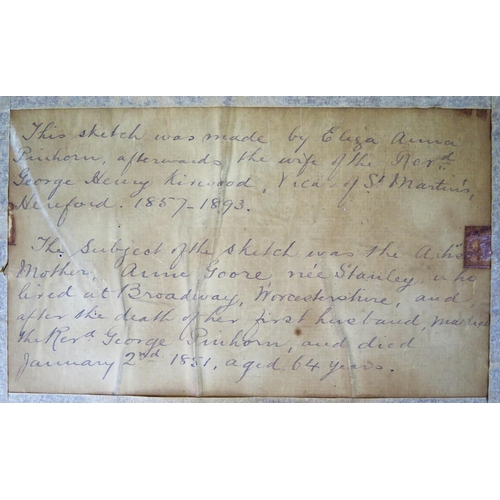 This sketch was made by Eliza Anna
Pinhorn, afterwards the wife of the Revd.
George Henry Kirwood, Vicar of St Martin's,
Hereford. 1857-1893.
The Subject of the sketch was the
Mother, Anne Goore, née Stanley, who
lived at Broadway, Worcestershire, and,
after the death of her first husband, married
the Revd. George Pinhorn, and died
January 2nd 1851, aged 64 years.